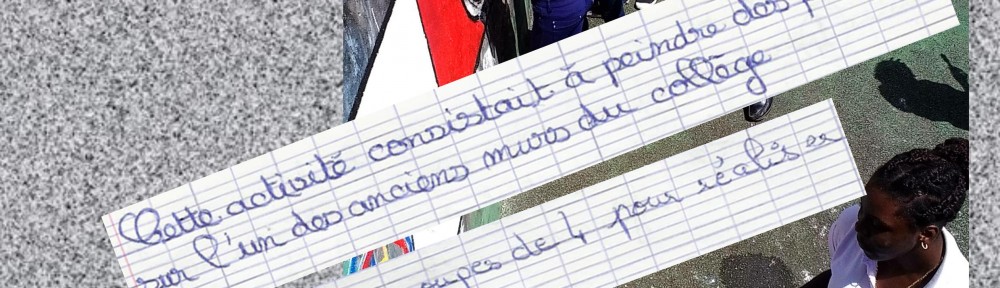 Cette activité consistait à peindre des
sur l'un des anciens murs du collège
de 4 pour réaliser